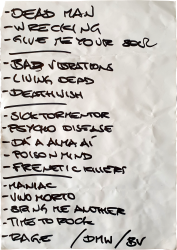 - DEAD MAN
- WRECKING
- GIVE ME YOUR SOUL
- BAD VIBRATIONS
- LIVING DEAD
- DEATHWISH
- SICK TORMENTOR
- PSYCHO DISEASE
- DÁ A ALMA AÍ
- POISON MIND
- FRENETIC KILLERS
- MANIAC
- VIVO MORTO
- BRING ME ANOTHER
- TIME TO ROCK
- RAGE / DMW / BV